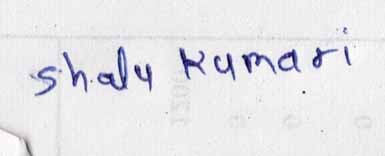 shalu Kumari